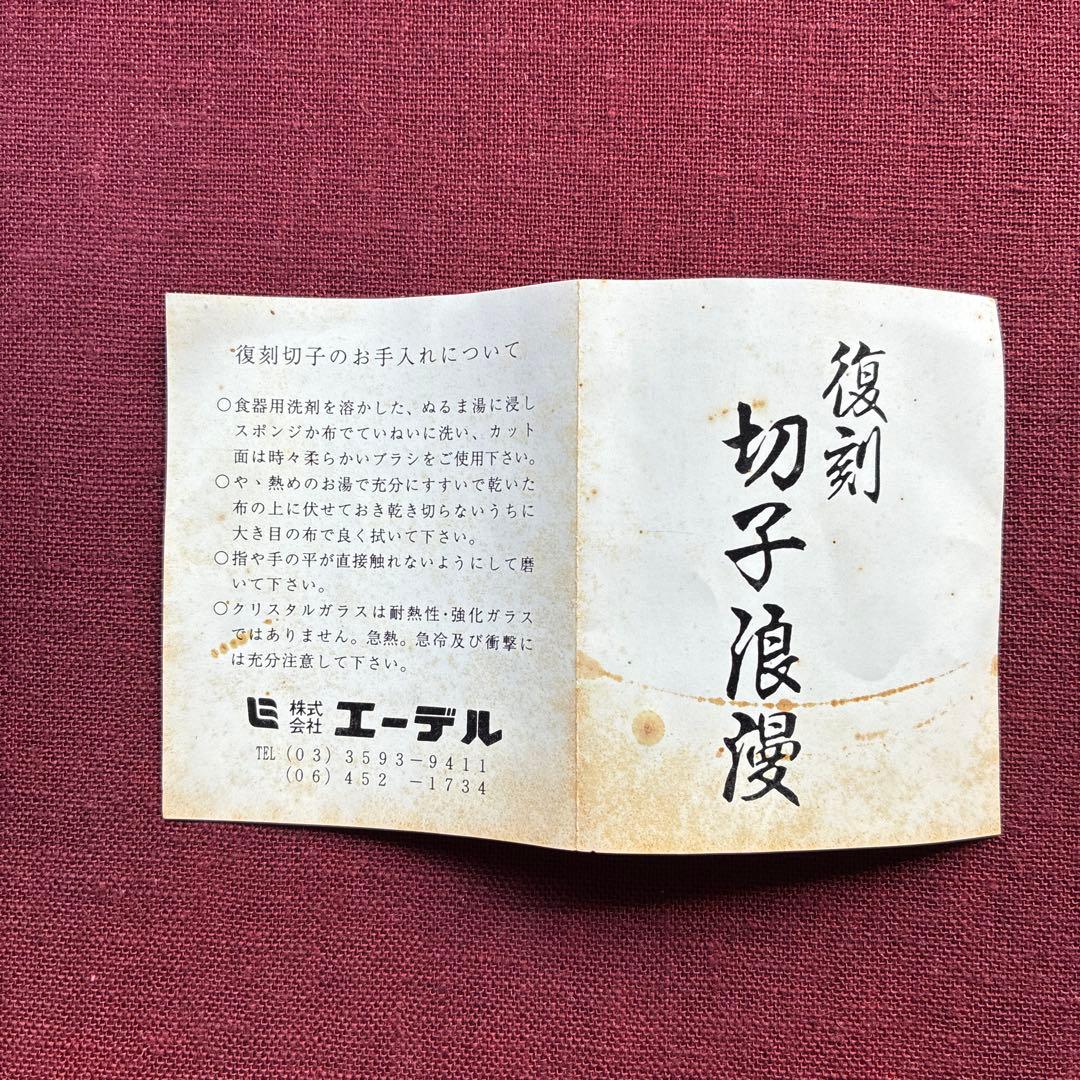 復刻
切子浪漫
復刻切子のお手入れについて
○食器用洗剤を溶かした、ぬるま湯に浸し
スポンジか布でていねいに洗い、カット
面は時々柔らかいブラシをご使用下さい。
○やゝ熱めのお湯で充分にすすいで乾いた
布の上に伏せておき乾き切らないうちに
大き目の布で良く拭いて下さい。
○指や手の平が直接触れないようにして磨
いて下さい。
○クリスタルガラスは耐熱性・強化ガラス
ではありません。急熱。急冷及び衝撃に
は充分注意して下さい。
株式会社 エーデル
TEL (03) 3593-9411
(06) 452 -1734